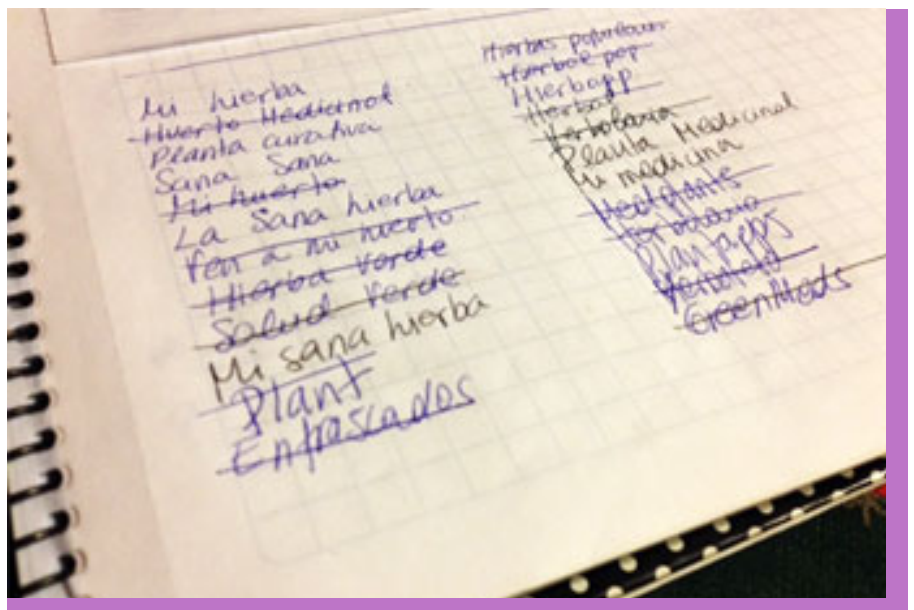 Mi hierba
Huerto Medicinal
Planta curativa
Sana Sana
Mi huerto
La Sana hierba
Ven a mi huerto
Hierba Verde
Salud Verde
Mi sana hierba
Plant
Enfrascados
Hierbas populares
Hierbapp
Herbal
Herbolaria
Planta Medicinal
Mi medicina
Medplants
Plantapps
GreenMeds